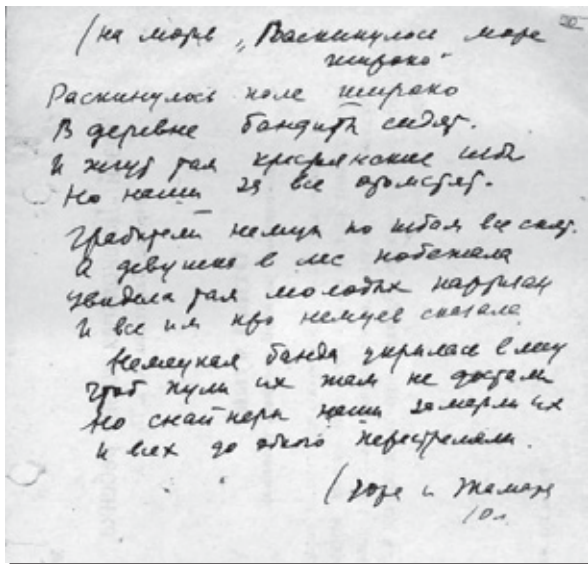 (на море „Раскинулось море
широко"
Раскинулось поле широко
В деревне бандиты сидят.
И жгут там крестьянские избы
Но наши за все отомстят.
Грабители немцы по избам все спят.
А девушка в лес побежала
Увидела там молодых партизан
И все им про немцев сказала
Немецкая банда укрылась в лесу
Чтоб пули их там не достали
Но снайперы наши
И всех до одного перестреляли.